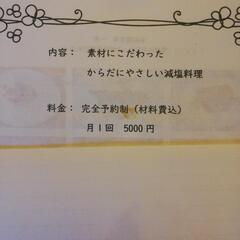 内容： 素材にこだわった
からだにやさしい減塩料理
料金： 完全予約制（材料費込）
月１回 5000円